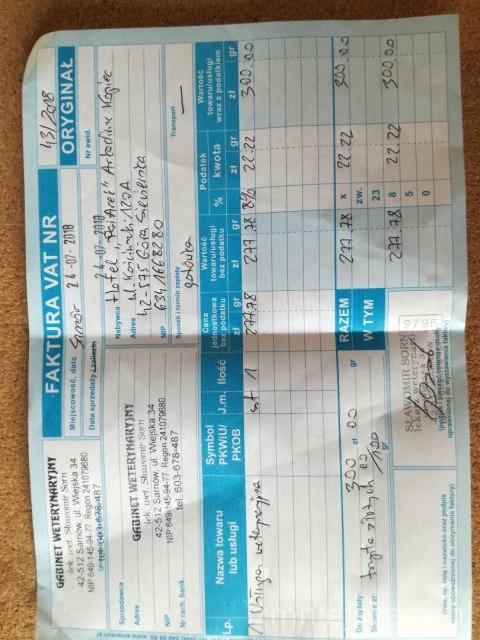 FAKTURA VAT NR
43/2018
ORYGINAŁ
GABINET WETERYNARYJNY
lek. wet. Sławomir Sorn
42-512 Sarnów, ul. Wiejska 34
NIP 649-145-94-77 Regon 241079680
tel. 603-678-487
Miejscowość, data
24-07-2018
Nr ewid.
Data sprzedaży
24-07-2018
Sprzedawca
GABINET WETERYNARYJNY
lek. wet. Sławomir Sorn
Adres
42-512 Sarnów, ul. Wiejska 34
NIP 649-145-94-77 Regon 241079680
tel. 603-678-487
NIP
Nr rach. bank.
Nabywca
Hotel "Psi Areł" Arkadiusz
Adres
120A
42-575 Góra Siewierska
NIP
Sposób i termin zapłaty
gotówka
Transport
—
Lp.
Nazwa towaru lub usługi
Symbol PKWiU/ PKOB
J.m.
Ilość
Cena jednostkowa bez podatku
zł gr
Wartość towaru/usługi bez podatku
zł gr
Podatek
% kwota
zł gr
Wartość towaru/usługi wraz z podatkiem
zł gr
1 Usługa weterynaryjna szt 1 277.78 277.78 8% 22.22 300.00
RAZEM 277.78 x 22.22 300.00
W TYM
zw.
23
277.78 8 22.22 300.00
5
0
Do zapłaty: 300 zł 00 gr
Słownie zł: trzysta złotych 00/100 gr
9795
SŁAWOMIR SORN
lekarz weterynarii
(Imię, np. imię i nazwisko oraz podpis
osoby upoważnionej do otrzymania faktury)
uprawnionej do wystawienia faktury)